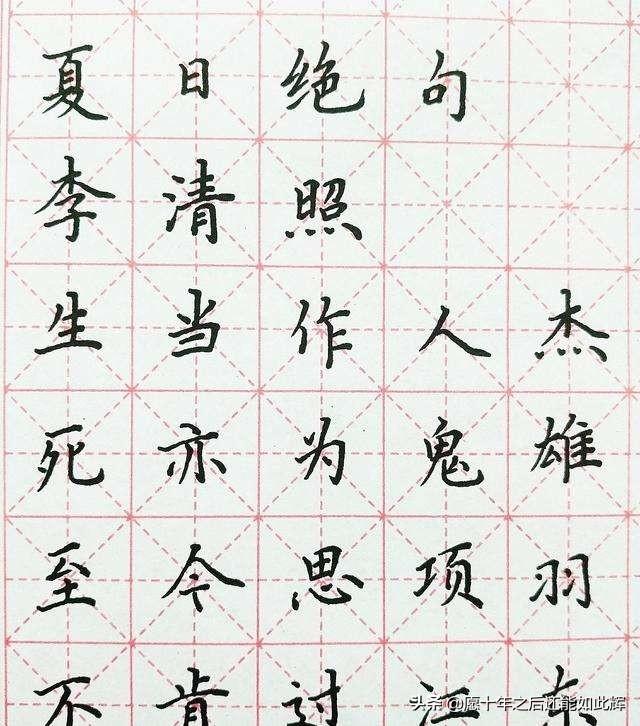 夏日绝句
李清照
生当作人杰
死亦为鬼雄
至今思项羽
不肯过江东
头条 @愿十年之后还能如此辉